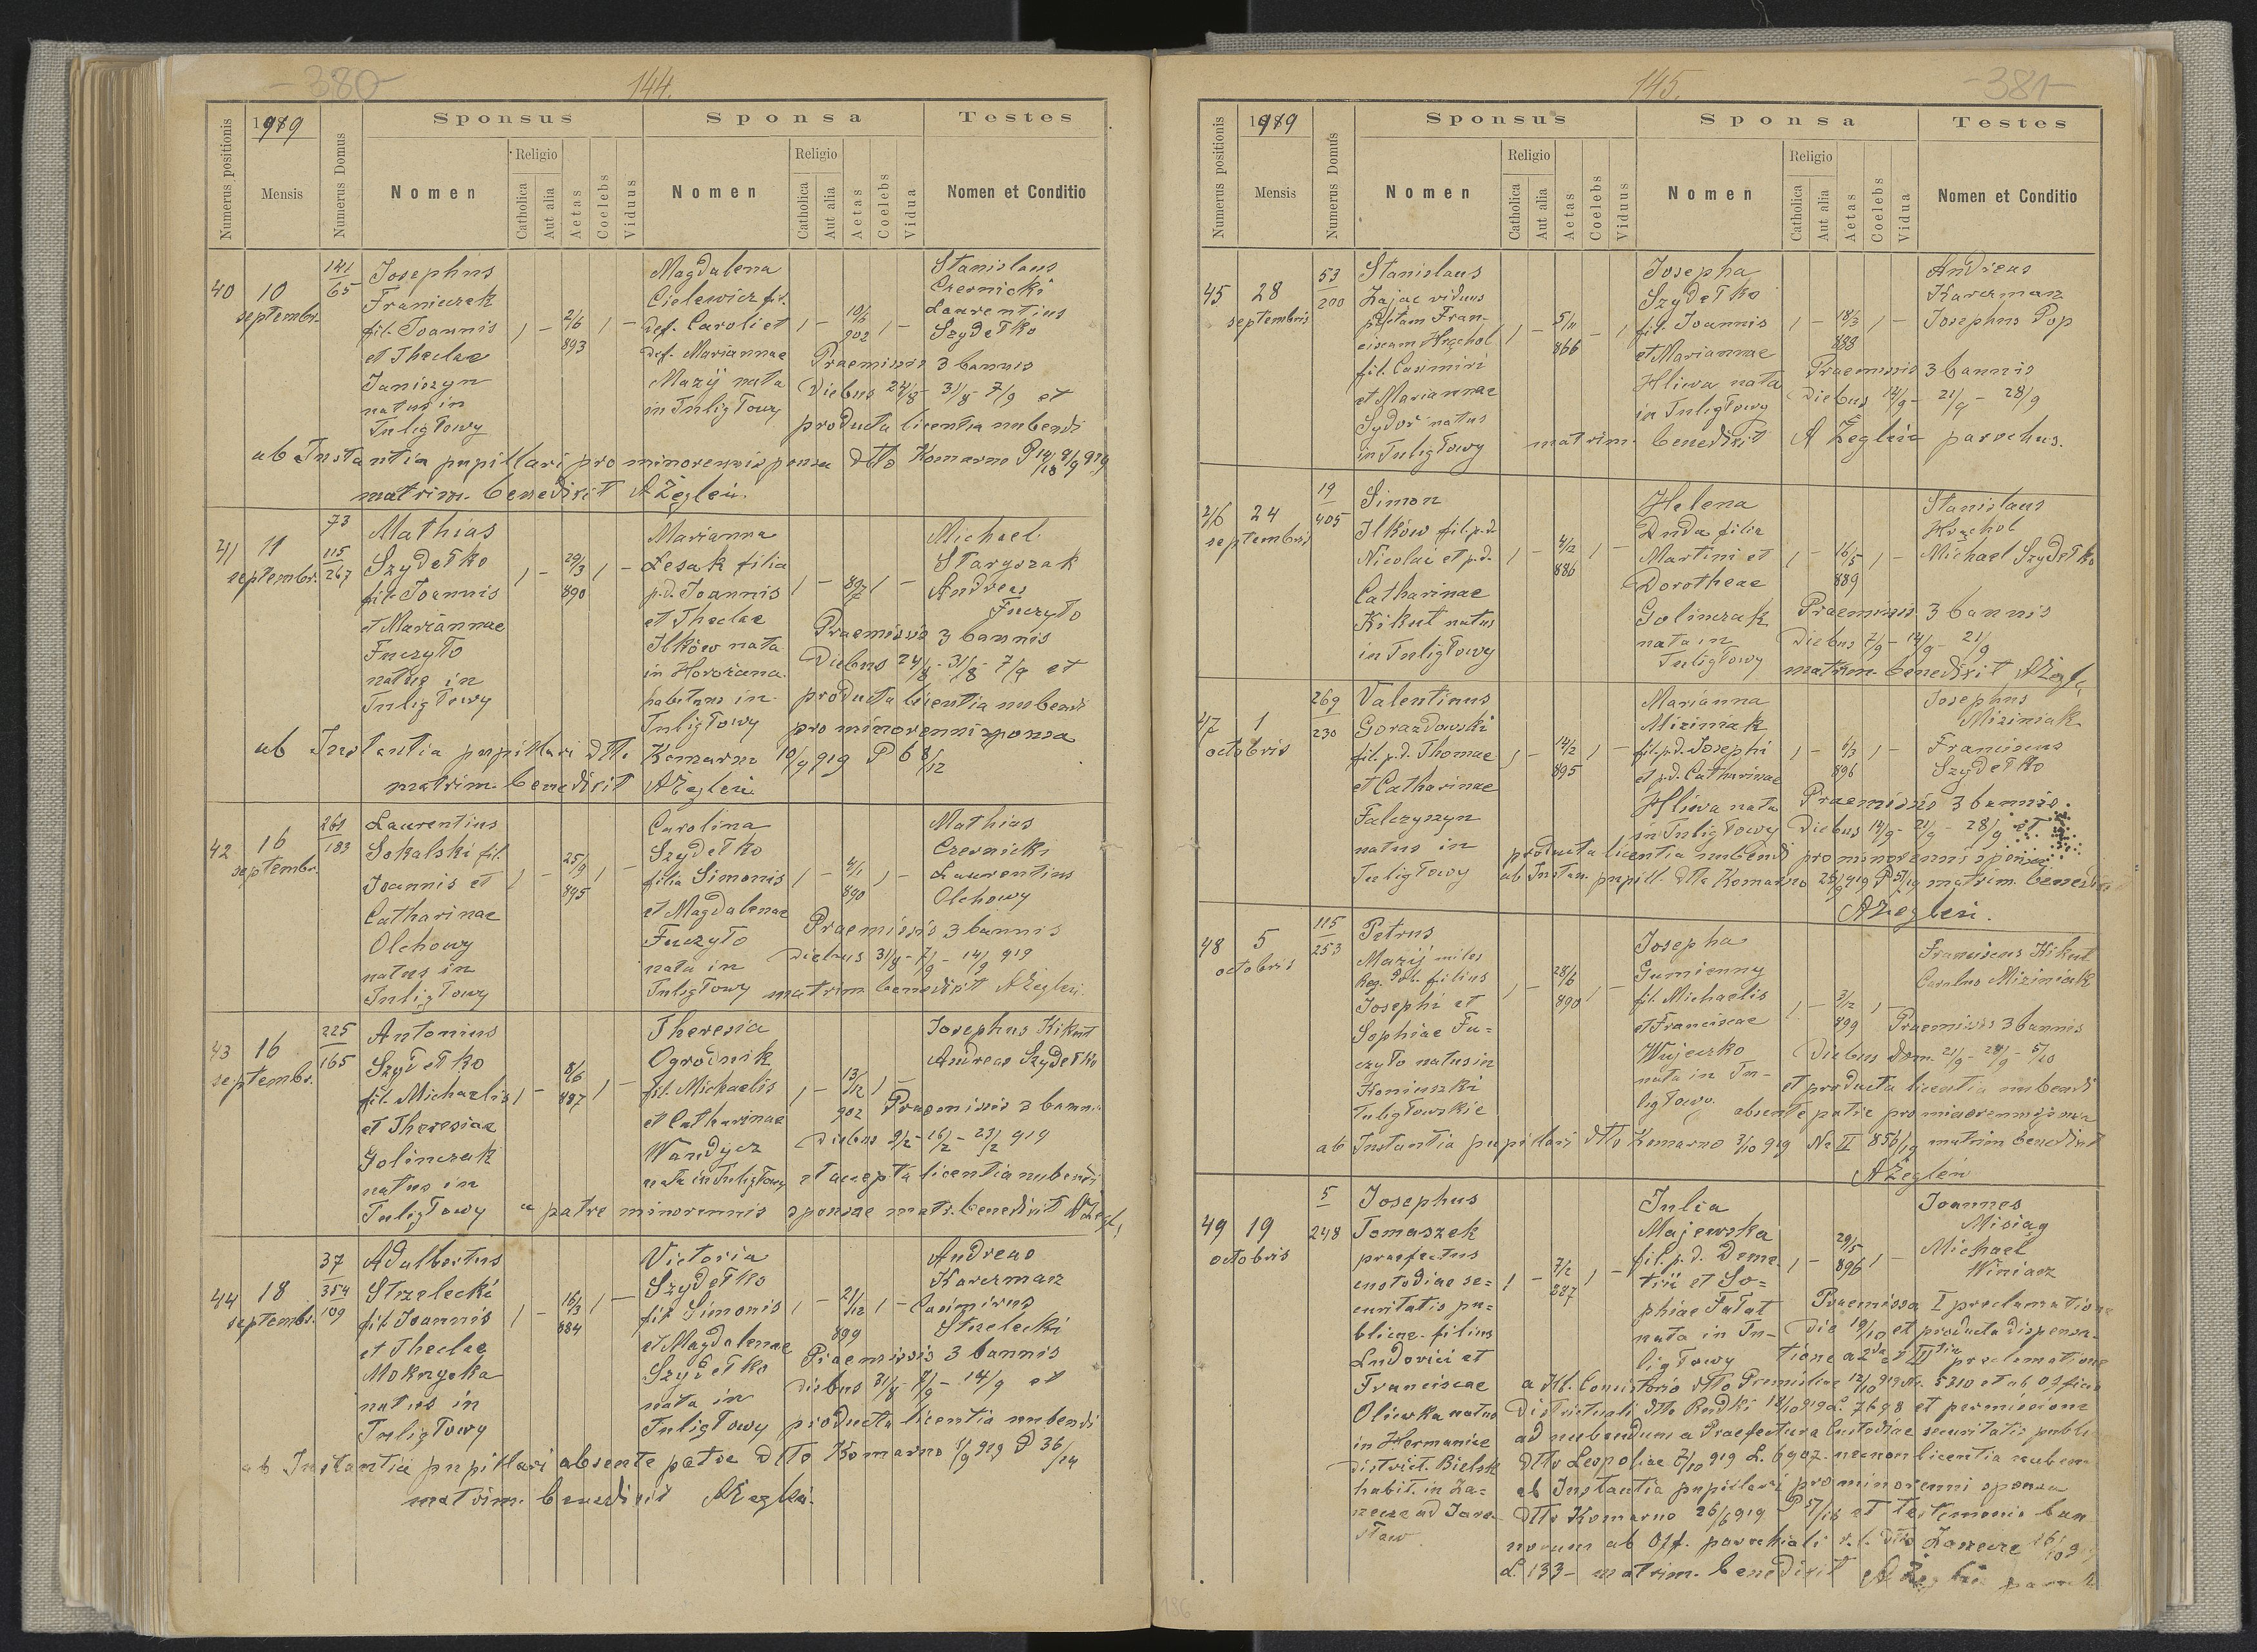 380
144.
Numerus positionis
1919
Mensis
Numerus Domus
Sponsus
Nomen
Religio
Catholica
Aut alia
Aetas
Coelebs
Viduus
Sponsa
Nomen
Religio
Catholica
Aut alia
Aetas
Coelebs
Vidua
Testes
Nomen et Conditio
40
10
septembr.
141
65
Josephus
Franiczek
fil. Joannis
et Theclae
Janiszyn
natus in
Tuligłowy
1 - 2/6 893 1 -
Magdalena
Cielewicz fil.
def. Caroli et
def. Mariannae
Mazij nata
in Tuligłowy
1 - 10/6 902 1 -
Stanislaus
Czernicki
Laurentius
Szydełko
Praemissis 3 bannis
diebus 24/8 - 31/8 - 7/9 et
producta licentia nubendi
ab Instantia pupillari pro minorenni sponsa dtto Komarno 8/9 919
matrim. benedixit A Żegleń.
41
11
septembr.
73
115
267
Mathias
Szydełko
fil. Joannis
et Mariannae
Fuczyło
natus in
Tuligłowy
1 - 29/3 890 1 -
Marianna
Lesak filia
p.d. Joannis
et Theclae
Ilków nata
in Horożana
habitans in
Tuligłowy
1 - 897 1 -
Michael
Staryszak
Andreas
Fuczyło
Praemissis 3 bannis
diebus 24/8 - 31/8 - 7/9 et
producta licentia nubendi
pro minorenni sponsa
ab Instantia pupillari dtto Komarno 10/9 919 P 68/12
matrim. benedixit A Żegleń
42
16
septembr.
261
183
Laurentius
Sokalski fil.
Joannis et
Catharinae
Olchowy
natus in
Tuligłowy
1 - 25/9 895 1 -
Carolina
Szydełko
filia Simonis
et Magdalenae
Fuczyło
nata in
Tuligłowy
1 - 4/1 890 1 -
Mathias
Czernicki
Laurentius
Olchowy
Praemissis 3 bannis
diebus 31/8 - 7/9 - 14/9 919
matrim. benedixit A Żegleń.
43
16
septembr.
225
165
Antonius
Szydełko
fil. Michaelis
et Theresiae
Golinczak
natus in
Tuligłowy
1 - 8/6 887 1 -
Theresia
Ogrodnik
fil. Michaelis
et Catharinae
Wandycz
nata in Tuligłowy
1 - 13/12 902 1 -
Josephus Kikut
Andreas Szydełko
Praemissis 3 bannis
diebus 9/2 - 16/2 - 23/2 919
et accepta licentia nubendi
a patre minorennis sponsae matr. benedixit A Żegl.
44
18
septembr.
37
354
109
Adalbertus
Strzelecki
fil. Joannis
et Theclae
Mokrzycka
natus in
Tuligłowy
1 - 16/3 884 1 -
Victoria
Szydełko
fil. Simonis
et Magdalenae
Szydełko
nata in
Tuligłowy
1 - 21/12 899 1 -
Andreas
Karczmarz
Casimirus
Strzelecki
Praemissis 3 bannis
diebus 31/8 - 7/9 - 14/9 et
producta licentia nubendi
ab Instantia pupillari absente patre dtto Komarno 919 P 36/14
matrim. benedixit A Żegleń.
145.
381
Numerus positionis
1919
Mensis
Numerus Domus
Sponsus
Nomen
Religio
Catholica
Aut alia
Aetas
Coelebs
Viduus
Sponsa
Nomen
Religio
Catholica
Aut alia
Aetas
Coelebs
Vidua
Testes
Nomen et Conditio
45
28
septembris
53
200
Stanislaus
Zając viduus
Fran-
ciscam Hrąchol
fil. Casimiri
et Mariannae
Sydor natus
in Tuligłowy
1 - 5/11 866 - 1
Josepha
Szydełko
fil. Joannis
et Mariannae
Hliwa nata
in Tuligłowy
1 - 18/3 888 1 -
Andreas
Karczmarz
Josephus Pop
Praemissis 3 bannis
diebus 14/9 - 21/9 - 28/9
matrim. benedixit A Żegleń parochus.
46
24
septembris
19
405
Simon
Ilków fil. p.d.
Nicolai et p.d.
Catharinae
Kikut natus
in Tuligłowy
1 - 4/12 886 1 -
Helena
Duda filia
Martini et
Dorotheae
Golinczak
nata in
Tuligłowy
1 - 16/5 889 1 -
Stanislaus
Hrąchol
Michael Szydełko
Praemissis 3 bannis
diebus 7/9 - 14/9 - 21/9
matrim. benedixit A Żegl.
47
1
octobris
269
230
Valentinus
Gorazdowski
fil. p.d. Thomae
et Catharinae
Falczyszyn
natus in
Tuligłowy
1 - 14/2 895 1 -
Marianna
Miziniak
fil. p.d. Josephi
et p.d. Catharinae
Hliwa nata
in Tuligłowy
1 - 896 1 -
Josephus
Miziniak
Franciscus
Szydełko
Praemissis 3 bannis
diebus 14/9 - 21/9 - 28/9 et
producta licentia nubendi pro minorennis sponsa
ab Instan. pupill. dtto Komarno 919 matrim. benedixit
A Żegleń.
48
5
octobris
115
253
Petrus
Mazij miles
Reg. Pol. filius
Josephi et
Sophiae Fu-
czyło natus in
Koniuszki
Tuligłowskie
1 - 28/6 890 1 -
Josepha
Gumienny
fil. Michaelis
et Franciscae
Wujeczko
nata in Tu-
ligłowy
1 - 3/12 899 1
Franciscus Kikut
Carolus Miziniak
Praemissis 3 bannis
diebus dom. 21/9 - 28/9 - 5/10
et producta licentia nubendi
absente patre pro minorenni sponsa
ab Instantia pupillari dtto Komarno 3/10 919 Nc II 856/19 matrim benedixit
A Żegleń
49
19
octobris
5
248
Josephus
Tomaszek
praefectus
custodiae se-
curitatis pu-
blicae filius
Ludovici et
Franciscae
Oliwka natus
in Hermanice
district. Bielsk
habit. in Za-
rzecze ad Jaro-
sław
1 - 7/2 887 1 -
Julia
Majewska
fil. p.d. Deme-
trii et So-
phiae Fałat
nata in Tu-
ligłowy
1 - 29/5 896 1 -
Joannes
Misiąg
Michael
Winiarz
Praemissa I proclamatione
die 19/10 et producta dispensa-
tione a 2da et IIItia proclamatione
a Hl. Consistorio dtto Premisliae 12/10 919 Nr. 5310 et ab Officio
Districtuali dtto Rudki 18/10 919 L. 7698 et permissione
ad nubendum a Praefectura Custodiae securitatis publi
dtto Leopoliae 7/10 919 L. 6907. necnon licentia nuben
ab Instantia pupillari pro minorenni sponsa
dtto Komarno 26/6 919 P 57/18 et testimonio ban
norum ab Off. parochiali r.l. dtto Zarzecze
L. 133 - matrim. benedixit A Żegleń paroch